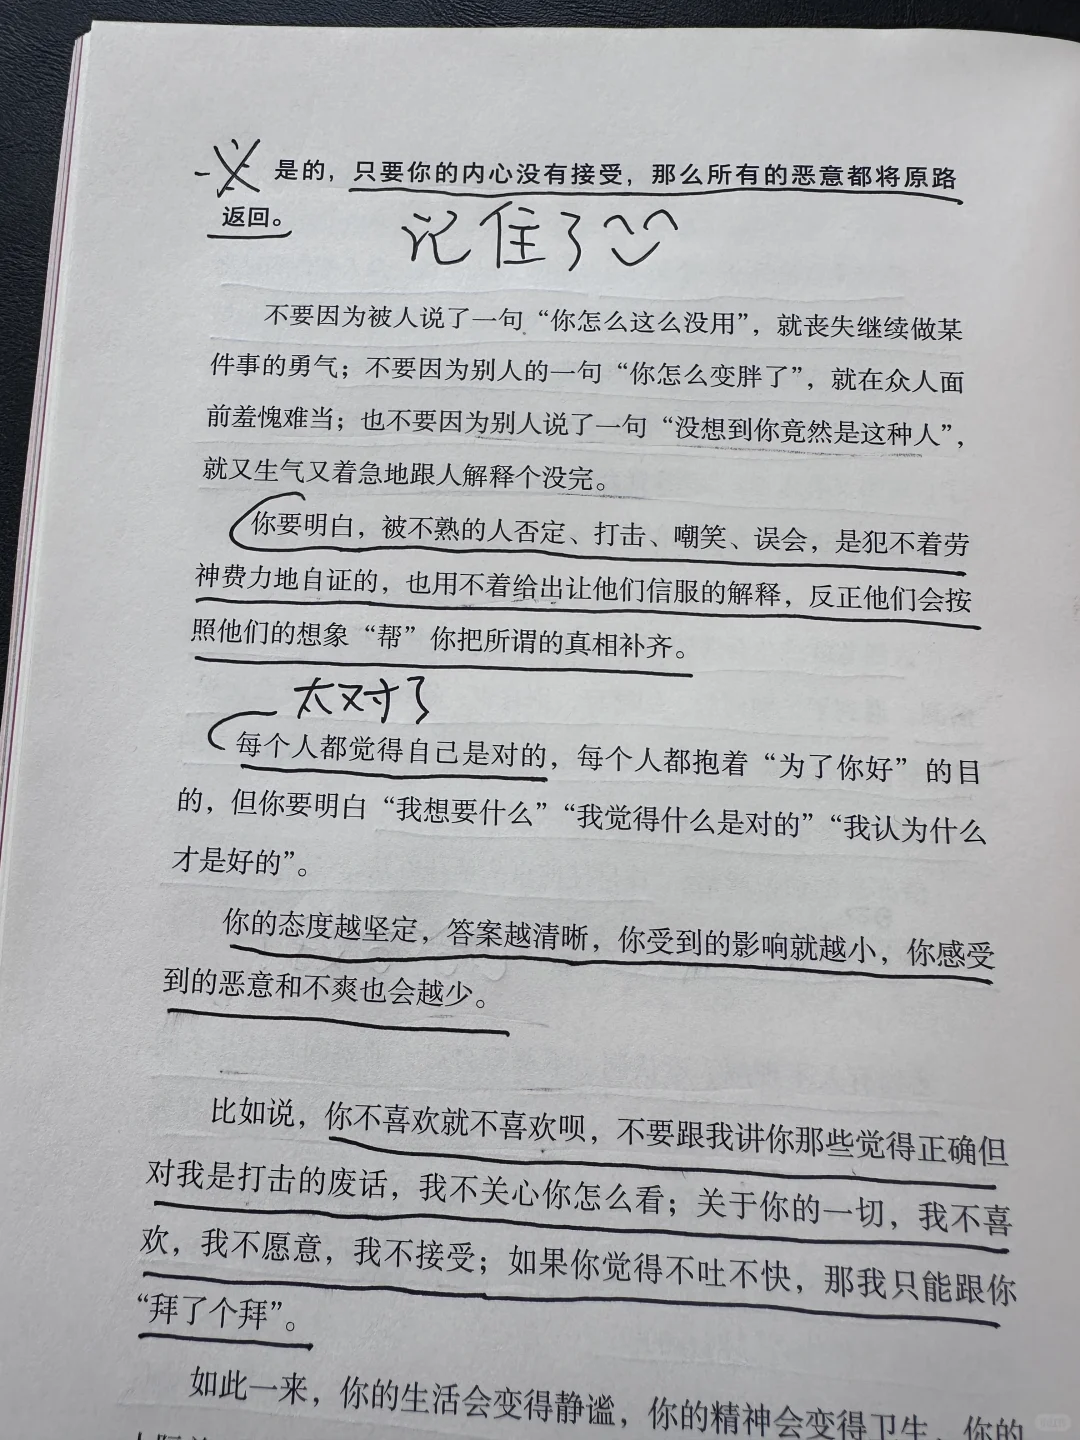 是的，只要你的内心没有接受，那么所有的恶意都将原路
返回。
记住了
不要因为被人说了一句“你怎么这么没用”，就丧失继续做某
件事的勇气；不要因为别人的一句“你怎么变胖了”，就在众人面
前羞愧难当；也不要因为别人说了一句“没想到你竟然是这种人”，
就又生气又着急地跟人解释个没完。
你要明白，被不熟的人否定、打击、嘲笑、误会，是犯不着劳
神费力地自证的，也用不着给出让他们信服的解释，反正他们会按
照他们的想象“帮”你把所谓的真相补齐。
太对了
每个人都觉得自己是对的，每个人都抱着“为了你好”的目
的，但你要明白“我想要什么”“我觉得什么是对的”“我认为什么
才是好的”。
你的态度越坚定，答案越清晰，你受到的影响就越小，你感受
到的恶意和不爽也会越少。
比如说，你不喜欢就不喜欢呗，不要跟我讲你那些觉得正确但
对我是打击的废话，我不关心你怎么看；关于你的一切，我不喜
欢，我不愿意，我不接受；如果你觉得不吐不快，那我只能跟你
“拜了个拜”。
如此一来，你的生活会变得静谧，你的精神会变得卫生，你的